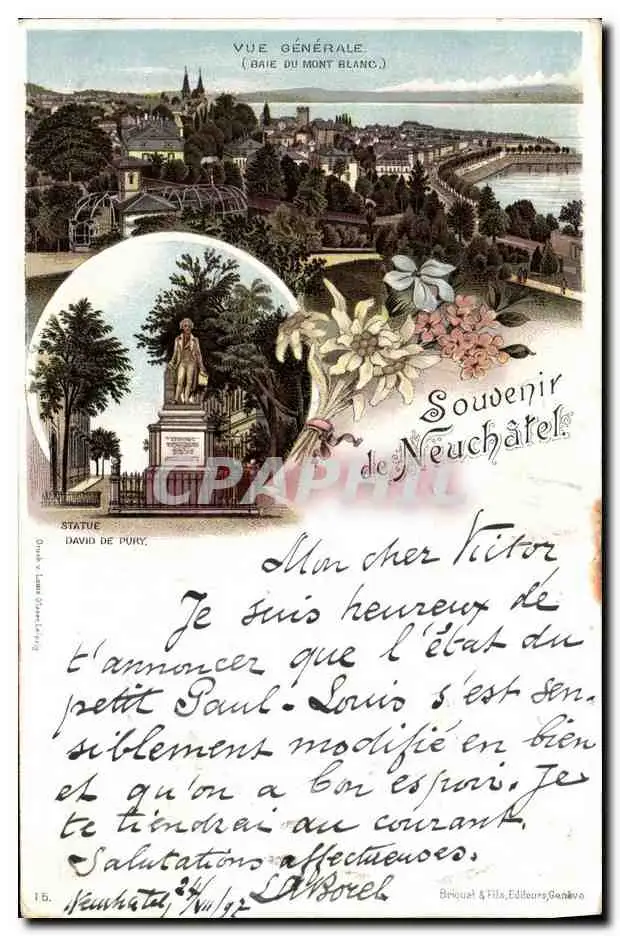 VUE GÉNÉRALE.
(BAIE DU MONT BLANC.)
Souvenir
de Neuchâtel.
CPAPHIL
STATUE
DAVID DE PURY.
Druck v. Louis Glaser, Leipzig
Mon cher Victor
Je suis heureux de
t'annoncer que l'état du
petit Paul-Louis s'est sen-
siblement modifié en bien
et qu'on a bon espoir. Je
te tiendrai au courant.
Salutations affectueuses.
Borel
Neuchâtel, 24/VII/97
15.
Briquet & Fils, Editeurs, Genève